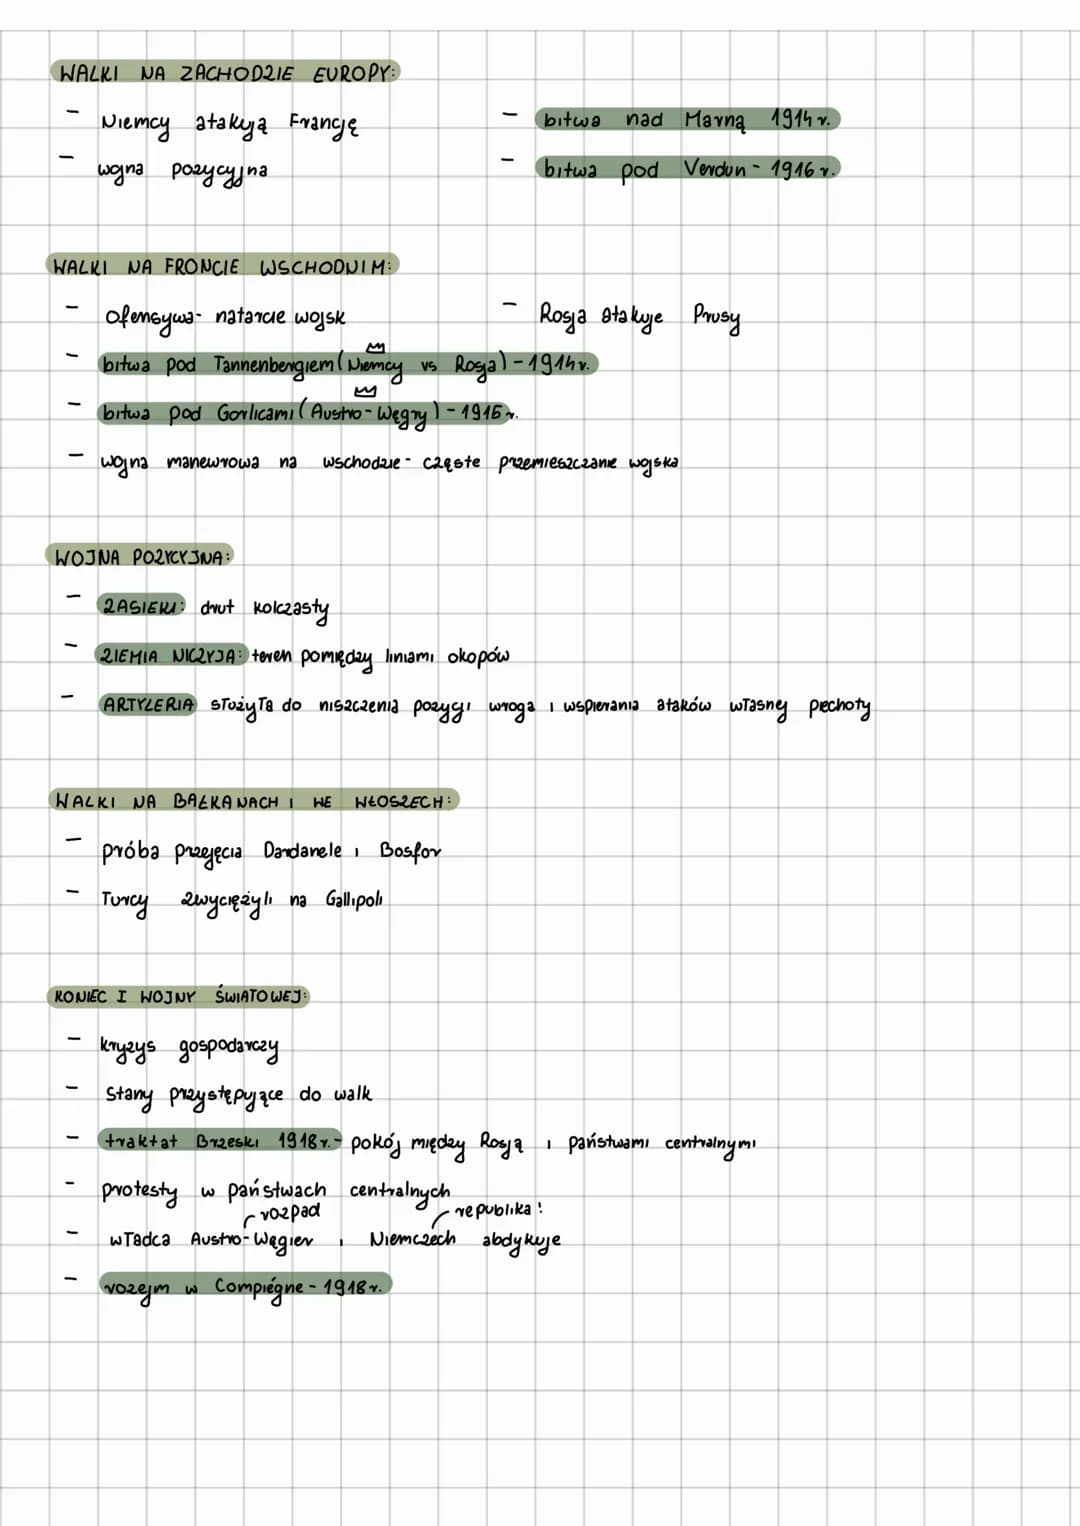 WALKI NA ZACHODZIE EUROPY:
- Niemcy atakują Francję
- wojna pozycyjna
- bitwa nad Marną 1914 r.
- bitwa pod Verdun - 1916 r.
WALKI NA FRONCIE WSCHODNIM:
- Ofensywa - natarcie wojsk
- Rosja atakuje Prusy
- bitwa pod Tannenbergiem (Niemcy vs Rosja) - 1914 r.
- bitwa pod Gorlicami (Austro-Węgry) - 1915 r.
- wojna manewrowa na wschodzie - częste przemieszczanie wojska
WOJNA POZYCYJNA:
- ZASIEKI: drut kolczasty
- ZIEMIA NICZYJA: teren pomiędzy liniami okopów
- ARTYLERIA służyła do niszczenia pozycji wroga i wspierania ataków własnej piechoty
WALKI NA BAŁKANACH I WE WŁOSZECH:
- próba przejęcia Dardanele i Bosfor
- Turcy zwyciężyli na Gallipoli
KONIEC I WOJNY ŚWIATOWEJ:
- kryzys gospodarczy
- Stany przystępujące do walk
- traktat Brzeski 1918 r. - pokój między Rosją i państwami centralnymi
- protesty w państwach centralnych
rozpad republika!
- władca Austro-Węgier i Niemczech abdykuje
- rozejm w Compiégne - 1918 r.